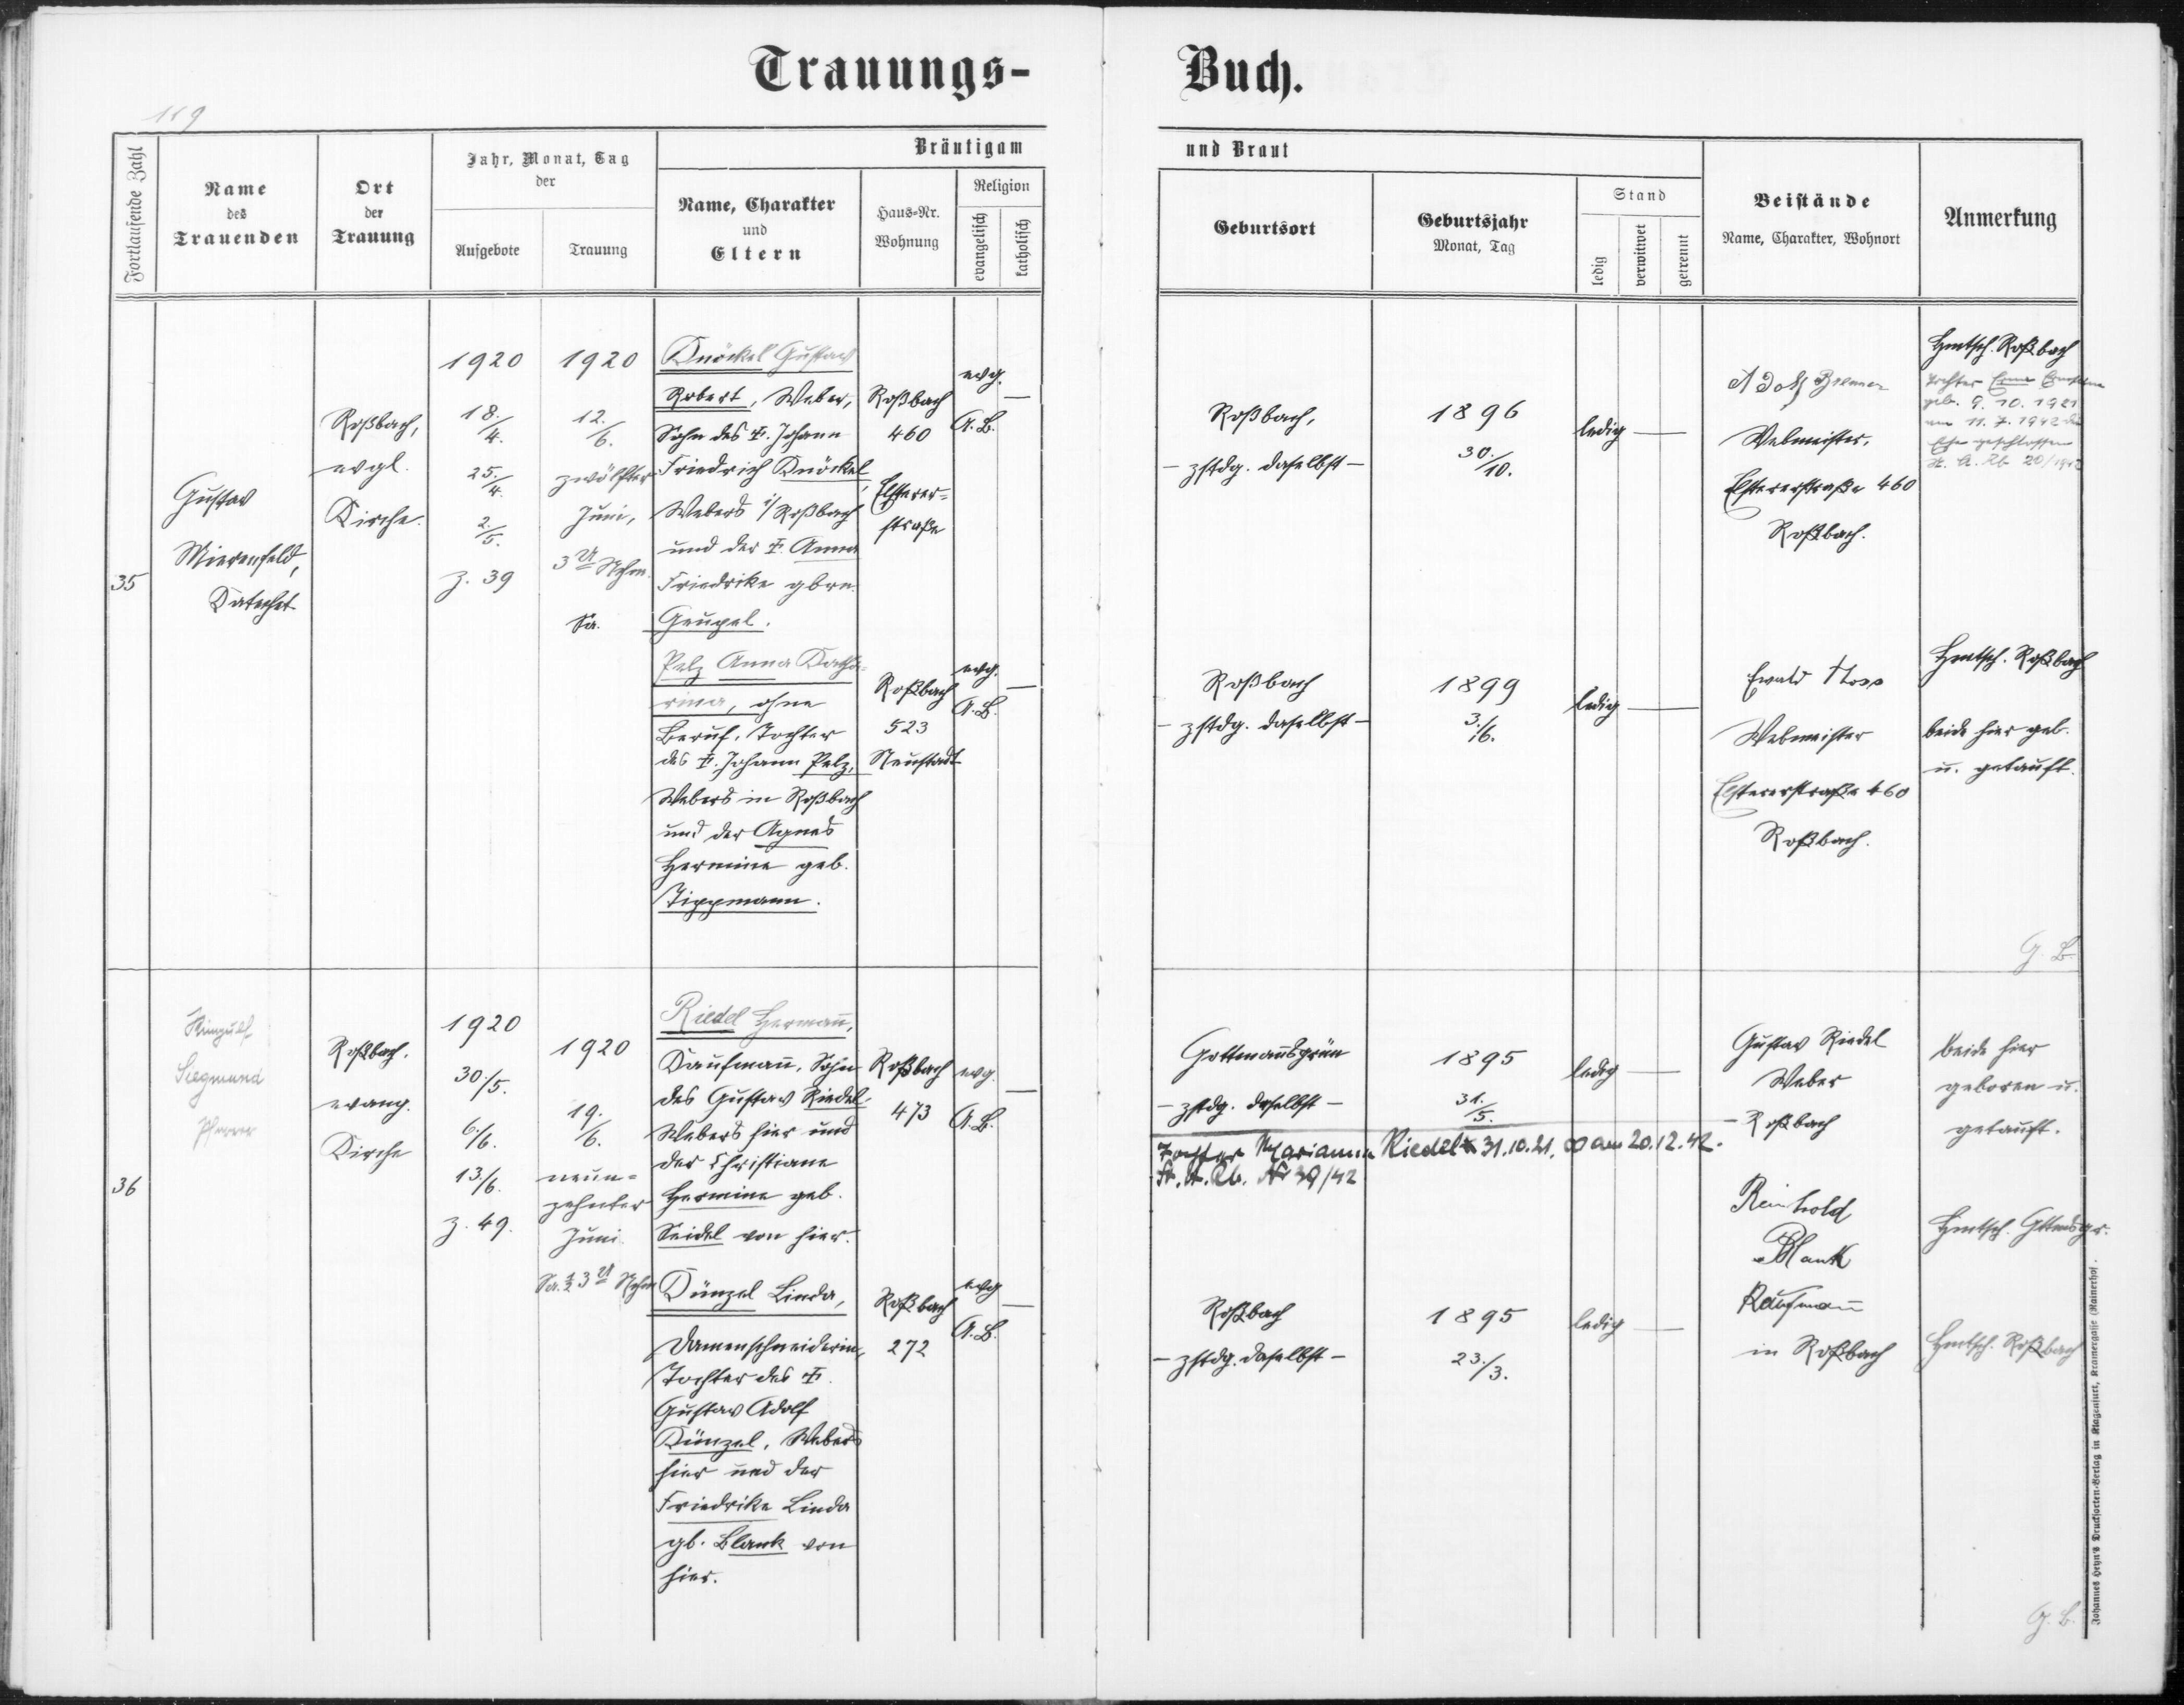 Trauungs-
Buch.
119
Fortlaufende Zahl
Name
des
Trauenden
Ort
der
Trauung
Jahr, Monat, Tag
der
Aufgebote
Trauung
Bräutigam
Name, Charakter
und
Eltern
Haus-Nr.
Wohnung
Religion
evangelisch
katholisch
und Braut
Geburtsort
Geburtsjahr
Monat, Tag
Stand
ledig
verwitwet
getrennt
Beistände
Name, Charakter, Wohnort
Anmerkung
35
Gustav
Mierenfeld,
Katechet
Roßbach,
evgl.
Kirche.
1920
18./4.
25./4.
2./5.
z. 39
1920
12./6.
zwölfter
Juni,
3 U Nchm.
Sa.
Knöckel Gustav
Robert, Weber,
Sohn des ✝. Johann
Friedrich Knöckel,
Webers i/ Roßbach
und der ✝. Anna
Friedrike gbrn.
Geupel.
Roßbach
460
Elsterer-
straße
evg.
A. B.
Roßbach,
- zstdg. daselbst -
1896
30./10.
ledig
Adolf
Webmeister,
Elstererstraße 460
Roßbach.
Hmtsch. Roßbach
Tochter Erna
geb. 9. 10. 1921
am 11. 7. 1942 die
Ehe geschlossen
St. A. Rb. 20/1942
Pelz Anna Katha-
rina, ohne
Beruf, Tochter
des ✝. Johann Pelz,
Webers in Roßbach
und der Agnes
Hermine geb.
Tippmann.
Roßbach
523
Neustadt
evg.
A. B.
Roßbach
- zstdg. daselbst -
1899
3./6.
ledig
Ewald Hoss
Webmeister
Elstererstraße 460
Roßbach.
Hmtsch. Roßbach
beide hier geb.
u. getauft.
G. B.
36
Siegmund
Pfarrer
Roßbach.
evang.
Kirche
1920
30./5.
6./6.
13./6.
z. 49.
1920
19./6.
neun-
zehnter
Juni
Sa. ½ 3 U Nchm
Riedel Hermann,
Kaufmann, Sohn
des Gustav Riedel,
Webers hier und
der Christiane
Hermine geb.
Seidel von hier.
Roßbach
473
evg.
A. B.
Gottmannsgrün
- zstdg. daselbst -
1895
31./5.
ledig
Tochter Marianne Riedel * 31.10.21, ∞ am 20.12.42.
St. A. Rb. Nr 39/42
Gustav Riedel
Weber
Roßbach
beide hier
geboren u.
getauft.
Künzel Linda,
Damenschneiderin,
Tochter des ✝.
Gustav Adolf
Künzel, Webers
hier und der
Friedrike Linda
gb. Blank von
hier.
Roßbach
272
evg
A. B.
Roßbach
- zstdg. daselbst -
1895
23./3.
ledig
Reinhold
Blank
Kaufmann
in Roßbach
Hmtsch. Gttmsgr.
Hmtsch. Roßbach
G. B.
Johannes Heyn's Drucksorten-Verlag in Klagenfurt, Kramergasse (Rainerhof).